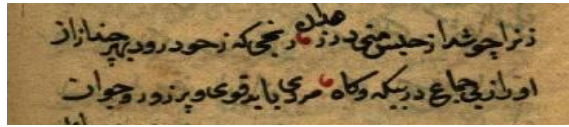 زنرا چو شد از حبس منی در زهدان رنجی که ز خود رود بهر چند ازان
او را ز پی جماع در بیکه و کاه مردی باید قوی و پر زور و جوان